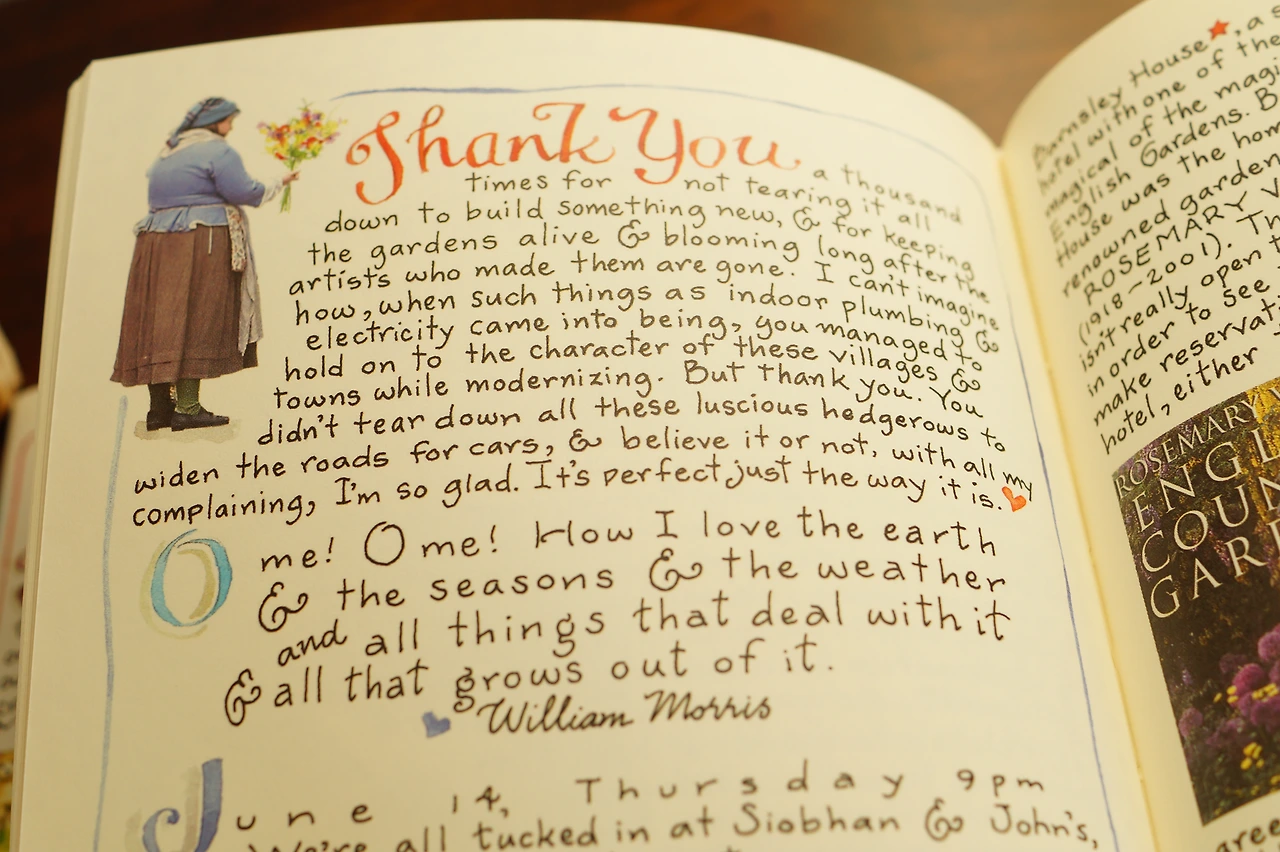 Thank You a thousand
times for not tearing it all
down to build something new, & for keeping
the gardens alive & blooming long after the
artists who made them are gone. I can't imagine
how, when such things as indoor plumbing &
electricity came into being, you managed to
hold on to the character of these villages &
towns while modernizing. But thank you. You
didn't tear down all these luscious hedgerows to
widen the roads for cars, & believe it or not, with all my
complaining, I'm so glad. It's perfect just the way it is.
O me! O me! How I love the earth
& the seasons & the weather
and all things that deal with it
& all that grows out of it.
William Morris
June 14, Thursday 9pm
We're all tucked in at Siobhan & John's,
Barnsley House, a s
hotel with one of the
magical of the magi
English Gardens. B
House was the hom
renowned garden
ROSEMARY V
(1918-2001). Th
isn't really open t
in order to see
make reservati
hotel, either
ROSEMARY V
ENGL
COUN
GAR